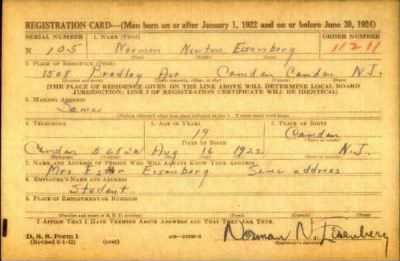 REGISTRATION CARD—(Men born on or after January 1, 1922 and on or before June 30, 1924)
SERIAL NUMBER 1. NAME (Print) ORDER NUMBER
N 105 Norman Newton Eisenberg 11211
2. PLACE OF RESIDENCE (Print)
1508 Bradley Ave Camden Camden N.J.
[THE PLACE OF RESIDENCE GIVEN ON THE LINE ABOVE WILL DETERMINE LOCAL BOARD
JURISDICTION; LINE 2 OF REGISTRATION CERTIFICATE WILL BE IDENTICAL]
3. MAILING ADDRESS
Same
4. TELEPHONE 5. AGE IN YEARS 6. PLACE OF BIRTH
19 Camden
DATE OF BIRTH
Camden Aug 16 1922 N.J.
7. NAME AND ADDRESS OF PERSON WHO WILL ALWAYS KNOW YOUR ADDRESS
Mrs Eisenberg Same address
8. EMPLOYER'S NAME AND ADDRESS
Student
9. PLACE OF EMPLOYMENT OR BUSINESS
I AFFIRM THAT I HAVE VERIFIED ABOVE ANSWERS AND THAT THEY ARE TRUE.
D. S. S. Form 1
(Revised 6-1-42) (over)
Norman N. Eisenberg